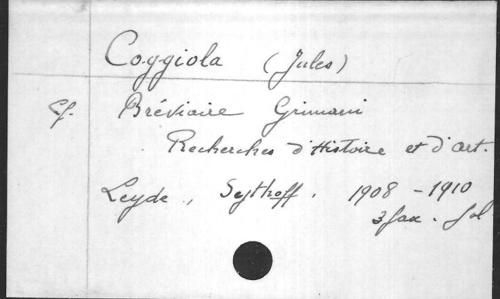 Coggiola (Jules)
Cf. Bréviaire Grimani
Recherches d'Histoire et d'art.
Leyde, Sijthoff. 1908-1910
3 fax. fol